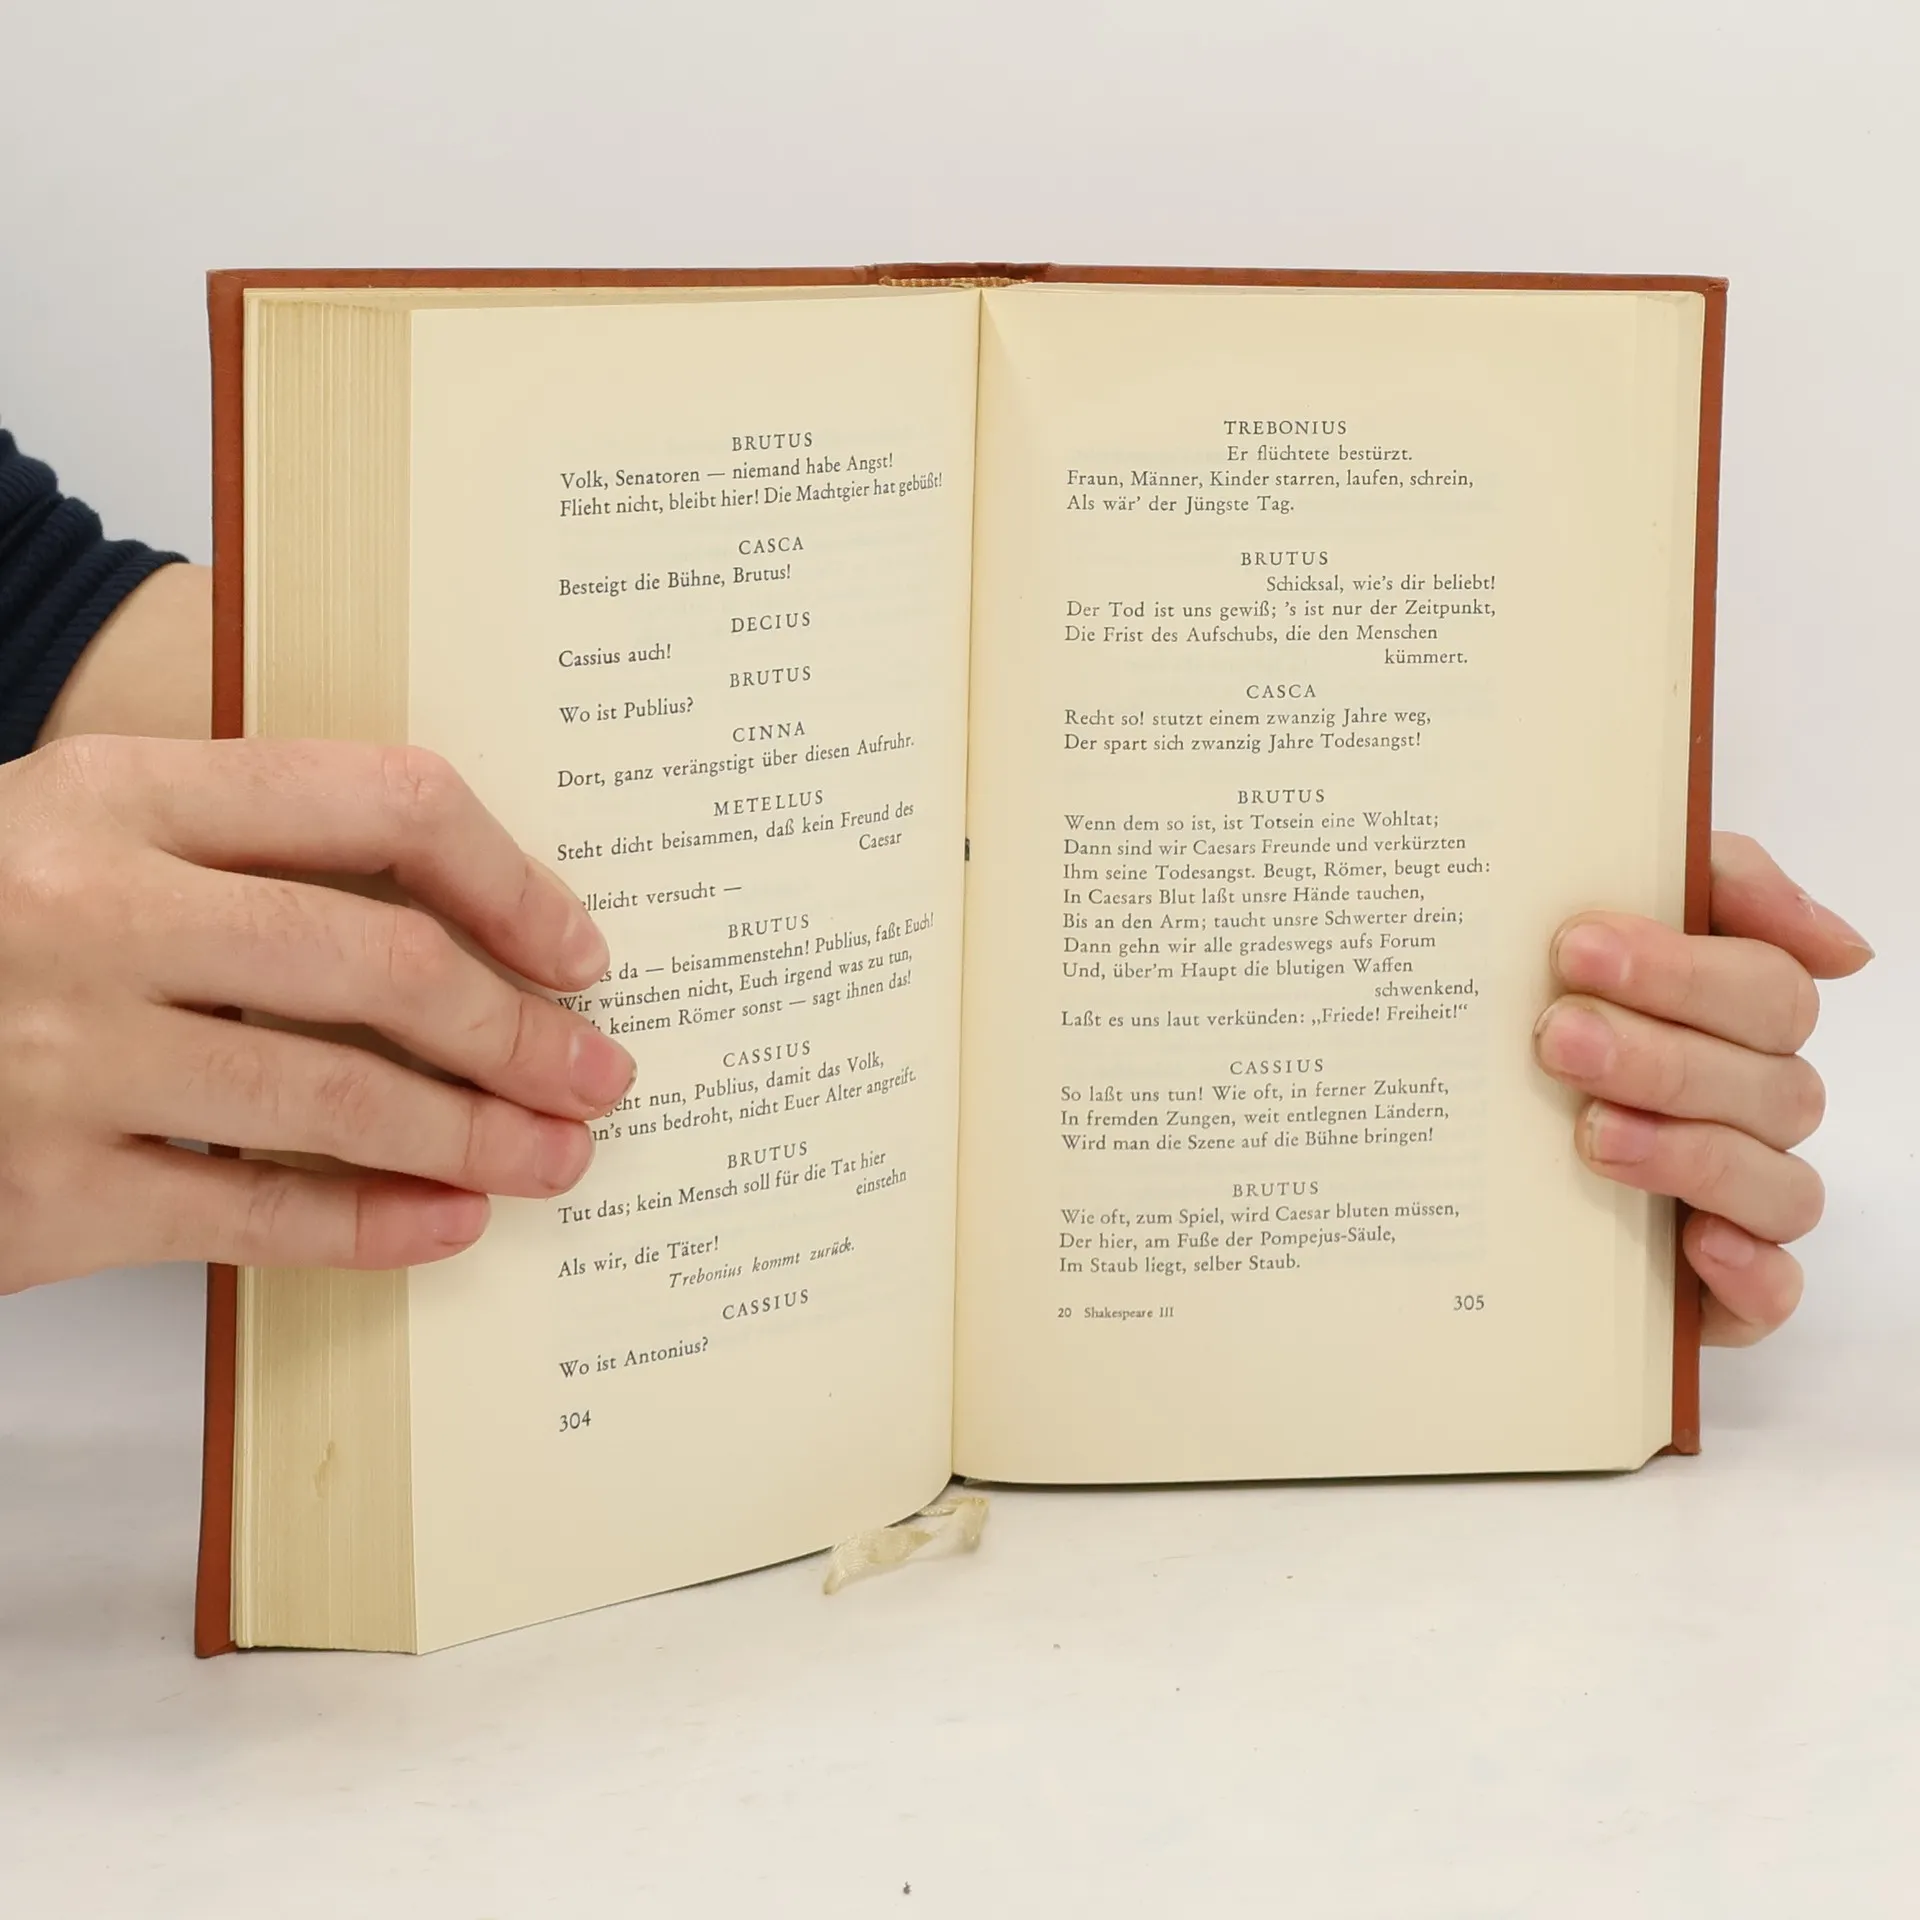 BRUTUS
Volk, Senatoren — niemand habe Angst!
Flieht nicht, bleibt hier! Die Machtgier hat gebüßt!
CASCA
Besteigt die Bühne, Brutus!
DECIUS
Cassius auch!
BRUTUS
Wo ist Publius?
CINNA
Dort, ganz verängstigt über diesen Aufruhr.
METELLUS
Steht dicht beisammen, daß kein Freund des
Caesar
versucht —
BRUTUS
da — beisammenstehn! Publius, faßt Euch!
Wir wünschen nicht, Euch irgend was zu tun,
keinem Römer sonst — sagt ihnen das!
CASSIUS
nun, Publius, damit das Volk,
uns bedroht, nicht Euer Alter angreift.
BRUTUS
Tut das; kein Mensch soll für die Tat hier
einstehn
Als wir, die Täter!
Trebonius kommt zurück.
CASSIUS
Wo ist Antonius?
304
TREBONIUS
Er flüchtete bestürzt.
Fraun, Männer, Kinder starren, laufen, schrein,
Als wär’ der Jüngste Tag.
BRUTUS
Schicksal, wie’s dir beliebt!
Der Tod ist uns gewiß; ’s ist nur der Zeitpunkt,
Die Frist des Aufschubs, die den Menschen
kümmert.
CASCA
Recht so! stutzt einem zwanzig Jahre weg,
Der spart sich zwanzig Jahre Todesangst!
BRUTUS
Wenn dem so ist, ist Totsein eine Wohltat;
Dann sind wir Caesars Freunde und verkürzten
Ihm seine Todesangst. Beugt, Römer, beugt euch:
In Caesars Blut laßt unsre Hände tauchen,
Bis an den Arm; taucht unsre Schwerter drein;
Dann gehn wir alle gradeswegs aufs Forum
Und, über’m Haupt die blutigen Waffen
schwenkend,
Laßt es uns laut verkünden: „Friede! Freiheit!“
CASSIUS
So laßt uns tun! Wie oft, in ferner Zukunft,
In fremden Zungen, weit entlegnen Ländern,
Wird man die Szene auf die Bühne bringen!
BRUTUS
Wie oft, zum Spiel, wird Caesar bluten müssen,
Der hier, am Fuße der Pompejus-Säule,
Im Staub liegt, selber Staub.
20 Shakespeare III
305